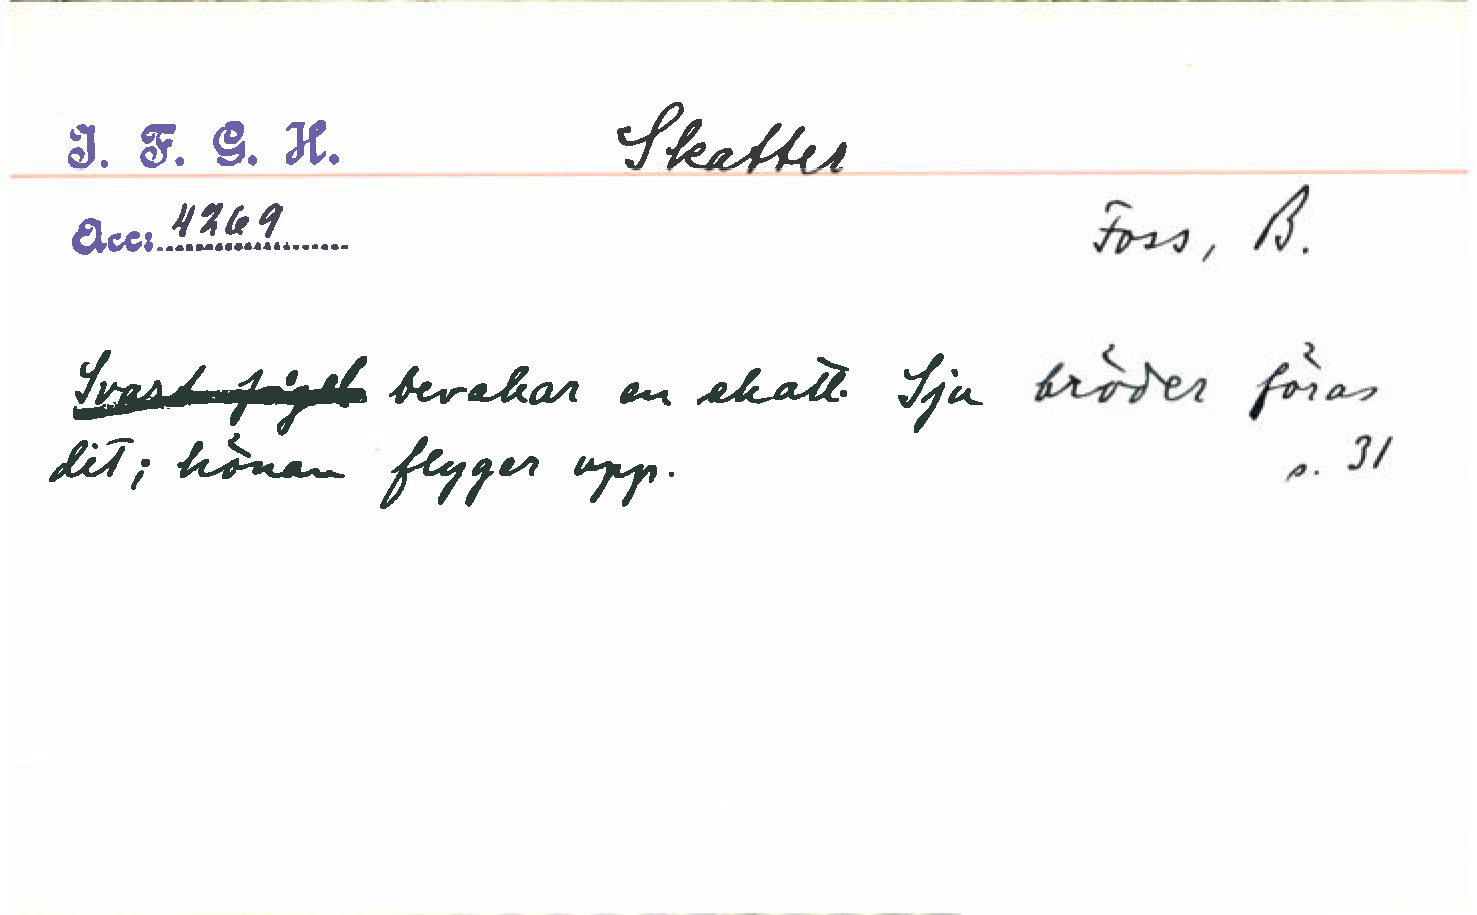 I. F. G. H. Skatter
Acc: 4269
Foss, B.
Svart fågel bevakar en skatt. Sju bröder föras
dit; hönan flyger upp. s. 31